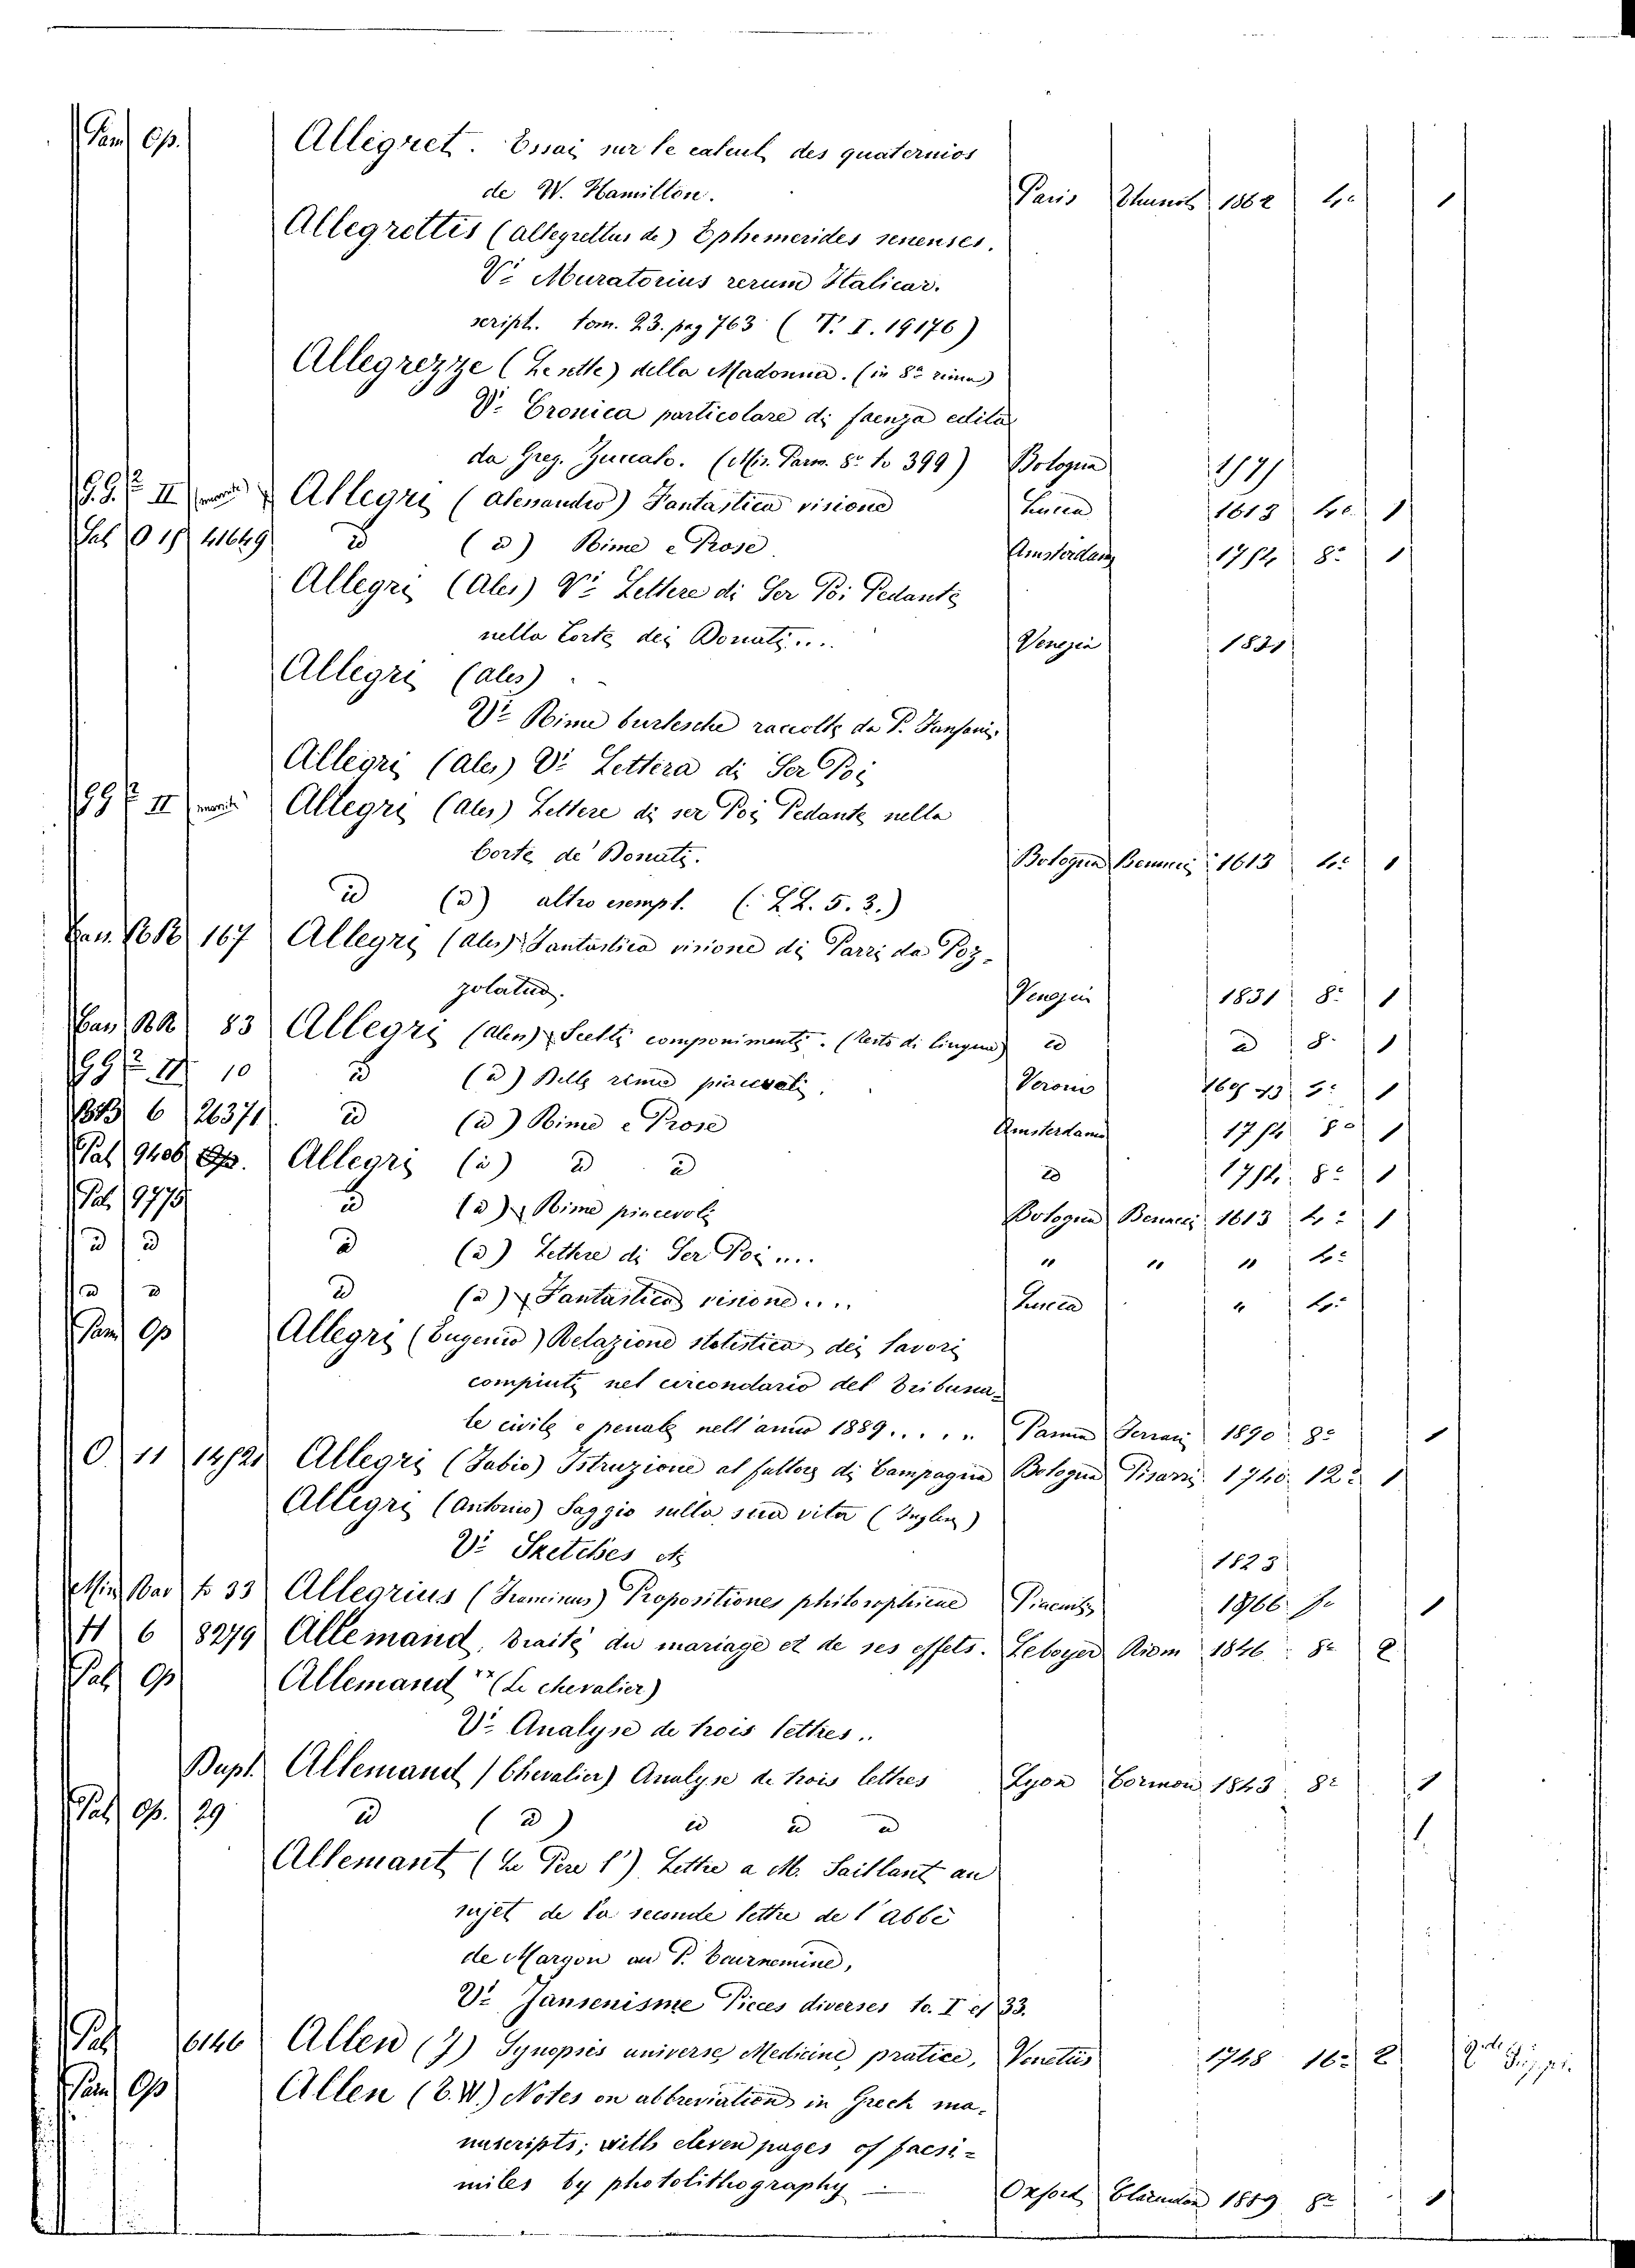 Pam Op. Allegret. Essai sur le calcul des quaternios
de W. Hamilton. Paris Thunot 1862 4° 1
Allegrettis (allegrettus de) Ephemerides senenses.
V. Muratorius rerum Italicar.
script. tom. 23. pag 763 (V. I. 19176)
Allegrezze (Le sette) della Madonna. (in 8ª rima)
V. Cronica particolare di faenza edita
da Greg. Zuccalo. (Mis. Parm. 8° to 399) Bologna
G.G. II Allegri (Alessandro) Fantastica visione Lucca 1613 4° 1
Sal O 15 41649 id (id) Rime e Prose Amsterdam 1754 8° 1
Allegri (Ales) V. Lettere di Ser Poi Pedante
nella Corte dei Donati.... Venezia 1831
Allegri (ales)
V. Rime burlesche raccolte da P. Fanfani.
Allegri (Ales) V. Lettera di Ser Poi
GG II Allegri (Ales) Lettere di ser Poi Pedante nella
Corte de' Donati. Bologna Benacci 1613 4° 1
id (id) altro esempl. (LL. 5. 3.)
167 Allegri (Ales) Fantastica visione di Parri da Poz-
zolatico. Venezia 1831 8° 1
83 Allegri (Ales) Scelti componimenti. (testo di lingua) id id 8° 1
GG II 10 id (id) Belle rime piacevoli. Verona 1
BB 6 26371 id (id) Rime e Prose Amsterdam 1754 8° 1
Pal 9406 Op. Allegri (id) id id id 1754 8° 1
Pal. 9775 id (id) Rime piacevoli Bologna Benacci 1613 4° 1
id id id (id) Lettere di Ser Poi.... " " " 4°
id id id (id) Fantastica visione.... Lucca " 4°
Pam Op Allegri (Eugenio) Relazione statistica dei lavori
compiuti nel circondario del Tribuna-
le civile e penale nell'anno 1889..... Parma Ferrari 1890 8° 1
O. 11 Allegri (Fabio) Istruzione al fattore di Campagna Bologna Pisarri 1740 12° 1
Allegri (Antonio) Saggio sulla sua vita (Inglese)
V. Sketches etc 1823
Min Bav to 33 Allegrius Propositiones philosophicae 1766 1
H 6 8279 Allemand. Traité du mariage et de ses effets. Leboyer Riom 1846 8° 2
Pal Op Allemand (Le chevalier)
V. Analyse de trois lettres..
Dupl. Allemand (Chevalier) Analyse de trois lettres Lyon Cormon 1843 8° 1
Pal Op. 29 id (id) id id id 1
Allemant (Le Pere l') Lettre a M. Saillant au
sujet de la seconde lettre de l'Abbé
de Margon au P. Tournemine,
V. Jansenisme Pieces diverses to. I et 33.
Pal 6146 Allen (J) Synopsis universe Medicine pratice, Venetiis 1748 16° 2
Pam Op Allen (T. W.) Notes on abbreviations in Greek ma-
nuscripts; with eleven pages of facsi-
miles by photolithography — Oxford Clarendon 1889 8° 1